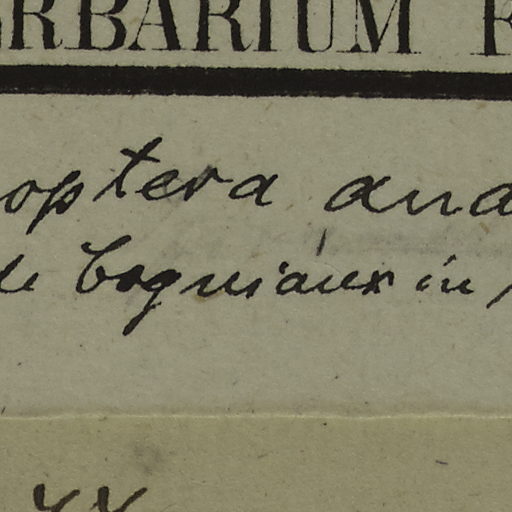 ERBARIUM R
optera ana
de Cogniaux in